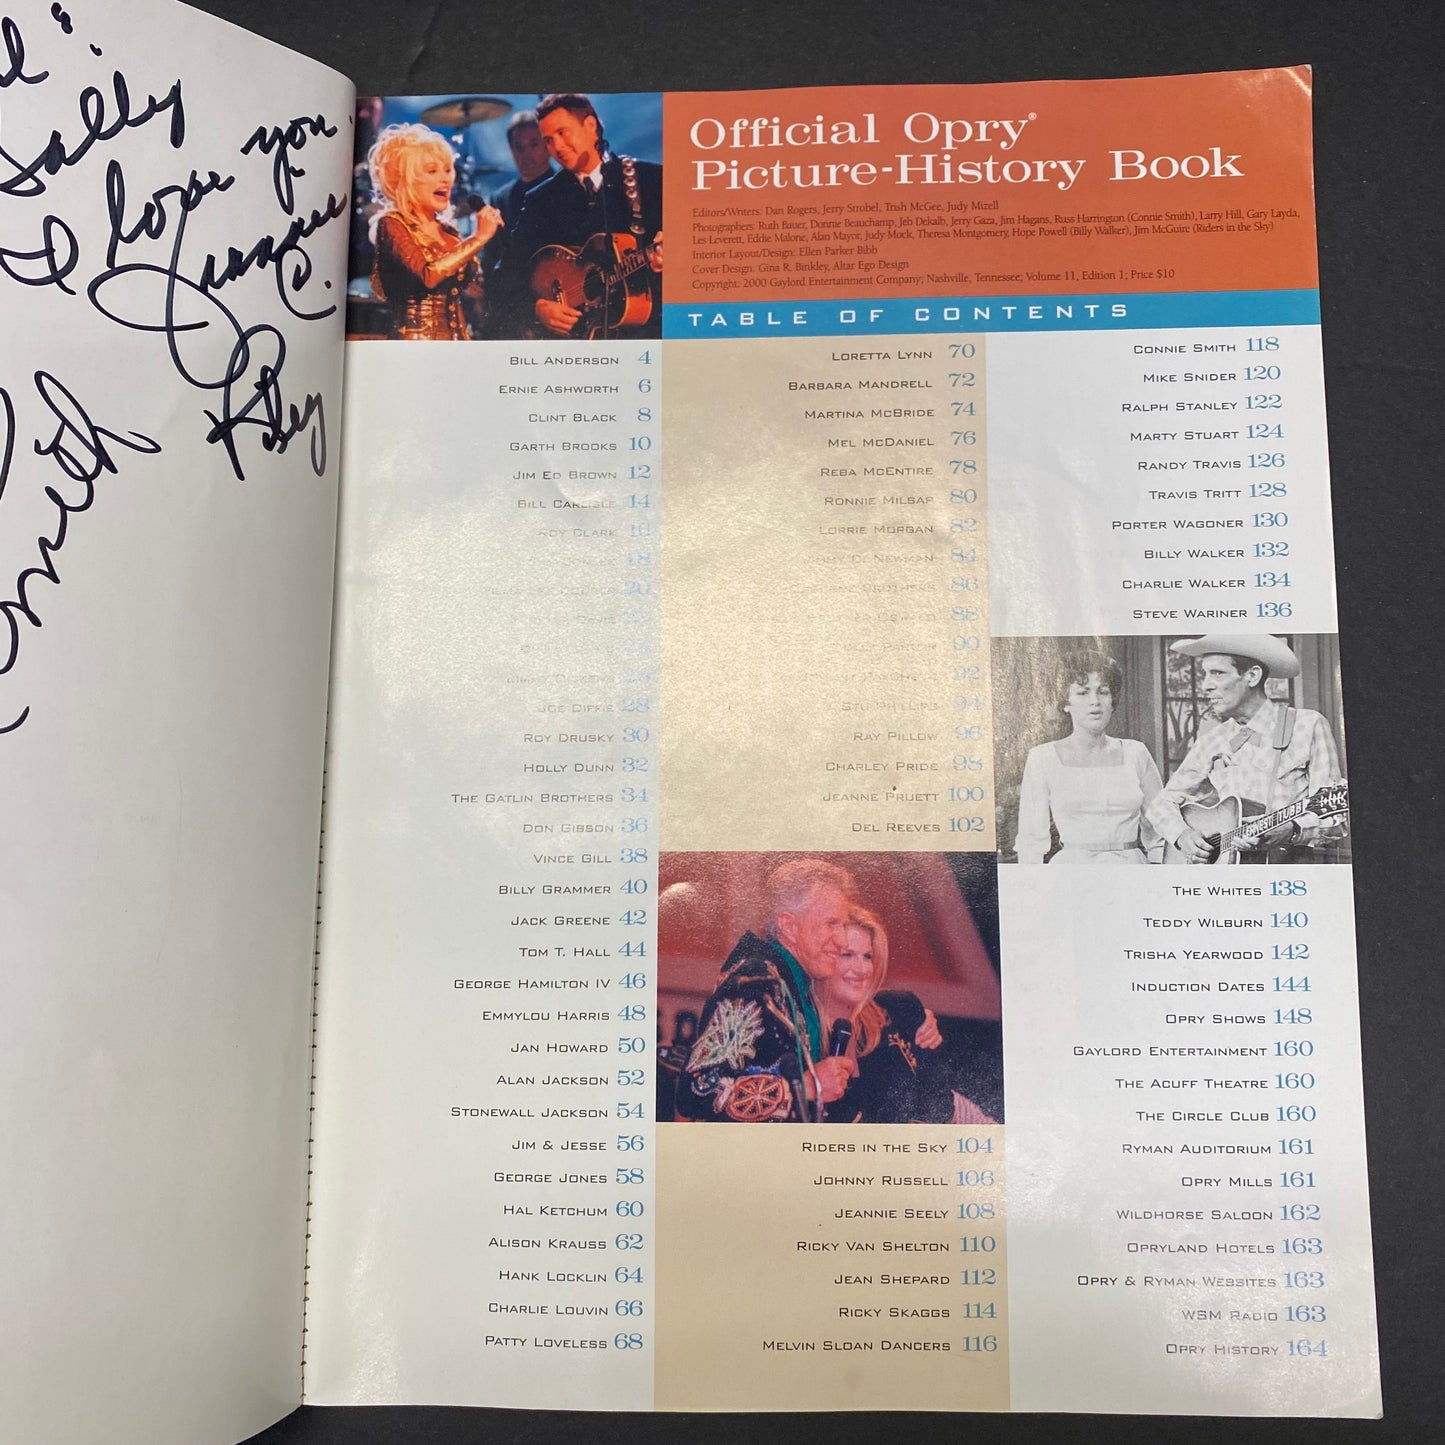 Sally
I love you
Jeannie
C.
Riley
Smith
Official Opry®
Picture-History Book
Editors/Writers: Dan Rogers, Jerry Strobel, Trish McGee, Judy Mizell
Photographers: Ruth Bauer, Donnie Beauchamp, Jeb Dekalb, Jerry Gaza, Jim Hagans, Russ Harrington (Connie Smith), Larry Hill, Gary Layda,
Les Leverett, Eddie Malone, Alan Mayor, Judy Mock, Theresa Montgomery, Hope Powell (Billy Walker), Jim McGuire (Riders in the Sky)
Interior Layout/Design: Ellen Parker Bibb
Cover Design: Gina R. Binkley, Altar Ego Design
Copyright: 2000 Gaylord Entertainment Company; Nashville, Tennessee; Volume 11, Edition 1; Price $10
TABLE OF CONTENTS
Bill Anderson 4
Ernie Ashworth 6
Clint Black 8
Garth Brooks 10
Jim Ed Brown 12
Bill Carlisle 14
Roy Clark 16
18
20
Dickens 26
Joe Diffie 28
Roy Drusky 30
Holly Dunn 32
The Gatlin Brothers 34
Don Gibson 36
Vince Gill 38
Billy Grammer 40
Jack Greene 42
Tom T. Hall 44
George Hamilton IV 46
Emmylou Harris 48
Jan Howard 50
Alan Jackson 52
Stonewall Jackson 54
Jim & Jesse 56
George Jones 58
Hal Ketchum 60
Alison Krauss 62
Hank Locklin 64
Charlie Louvin 66
Patty Loveless 68
Loretta Lynn 70
Barbara Mandrell 72
Martina McBride 74
Mel McDaniel 76
Reba McEntire 78
Ronnie Milsap 80
Lorrie Morgan 82
C. Newman 84
Brothers 86
Oswald 88
Dolly Parton 90
92
Stu Phillips 94
Ray Pillow 96
Charley Pride 98
Jeanne Pruett 100
Del Reeves 102
Riders in the Sky 104
Johnny Russell 106
Jeannie Seely 108
Ricky Van Shelton 110
Jean Shepard 112
Ricky Skaggs 114
Melvin Sloan Dancers 116
Connie Smith 118
Mike Snider 120
Ralph Stanley 122
Marty Stuart 124
Randy Travis 126
Travis Tritt 128
Porter Wagoner 130
Billy Walker 132
Charlie Walker 134
Steve Wariner 136
ERNEST TUBB
The Whites 138
Teddy Wilburn 140
Trisha Yearwood 142
Induction Dates 144
Opry Shows 148
Gaylord Entertainment 160
The Acuff Theatre 160
The Circle Club 160
Ryman Auditorium 161
Opry Mills 161
Wildhorse Saloon 162
Opryland Hotels 163
Opry & Ryman Websites 163
WSM Radio 163
Opry History 164